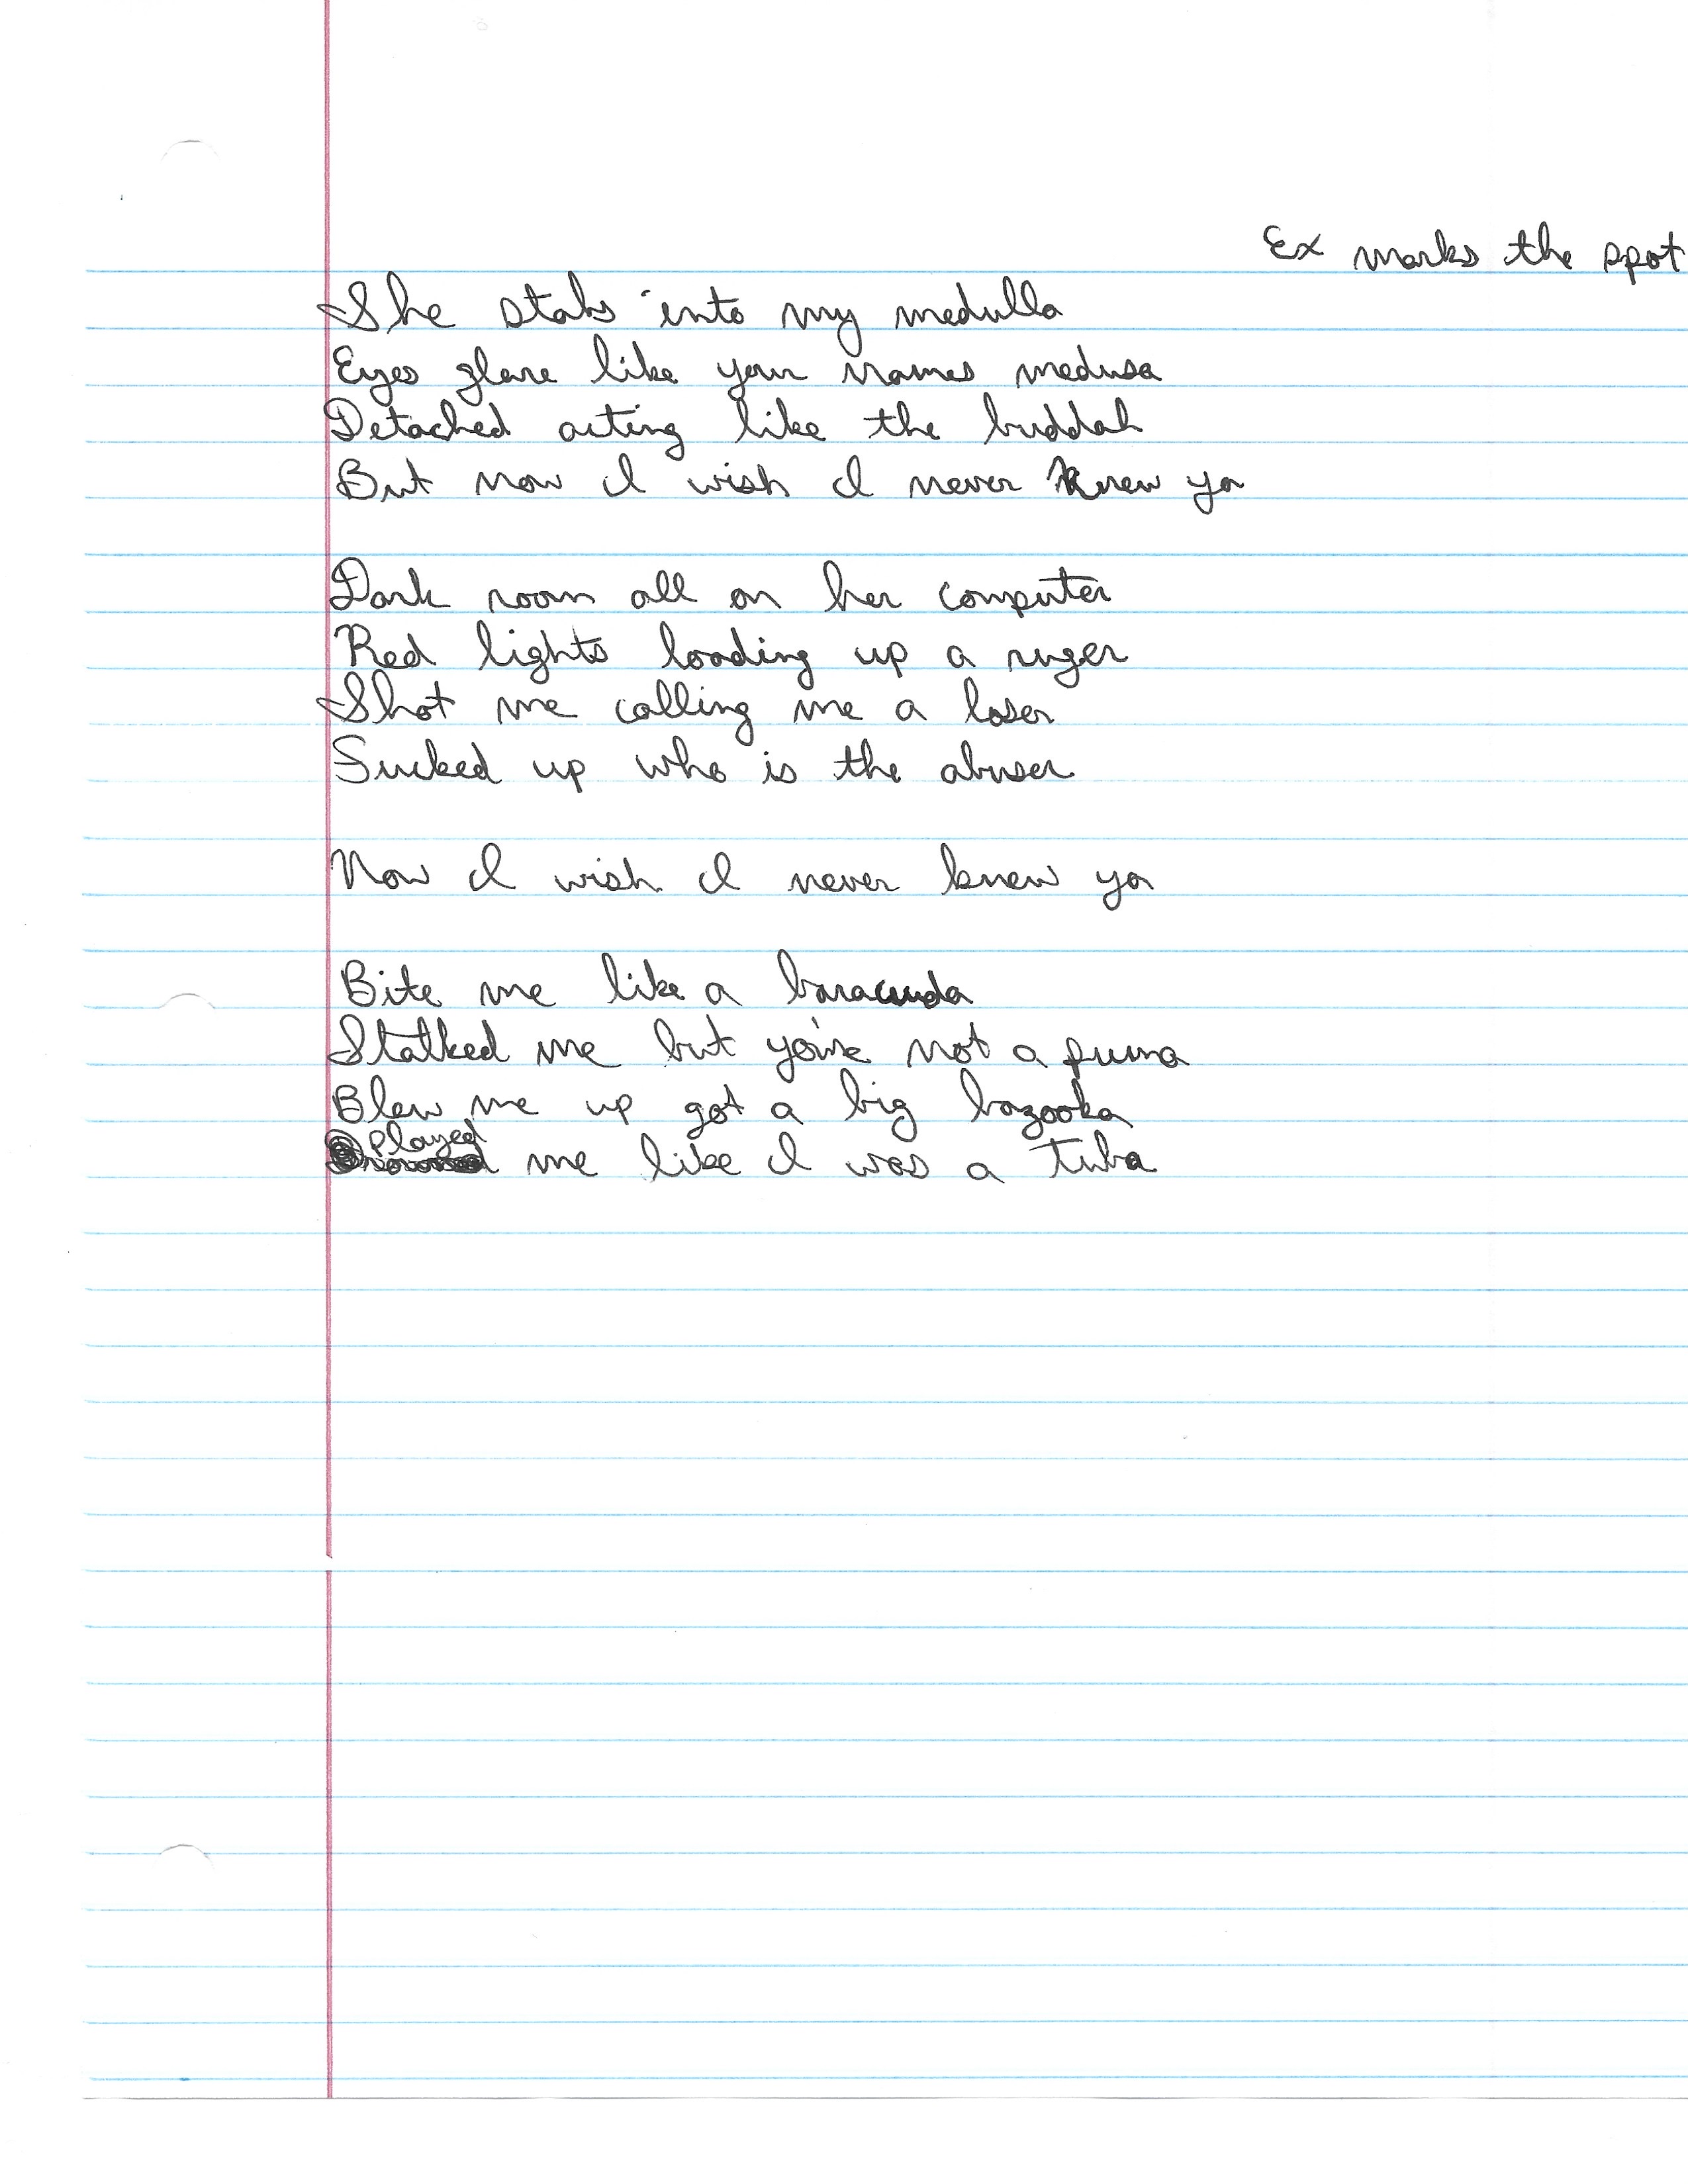 Ex marks the spot
She stabs into my medulla
Eyes glare like your names medusa
Detached acting like the buddah
But now I wish I never knew ya
Dark room all on her computer
Red lights loading up a ruger
Shot me calling me a loser
Sucked up who is the abuser
Now I wish I never knew ya
Bite me like a baracuda
Stalked me but you're not a puma
Blew me up got a big bazooka
Played me like I was a tuba